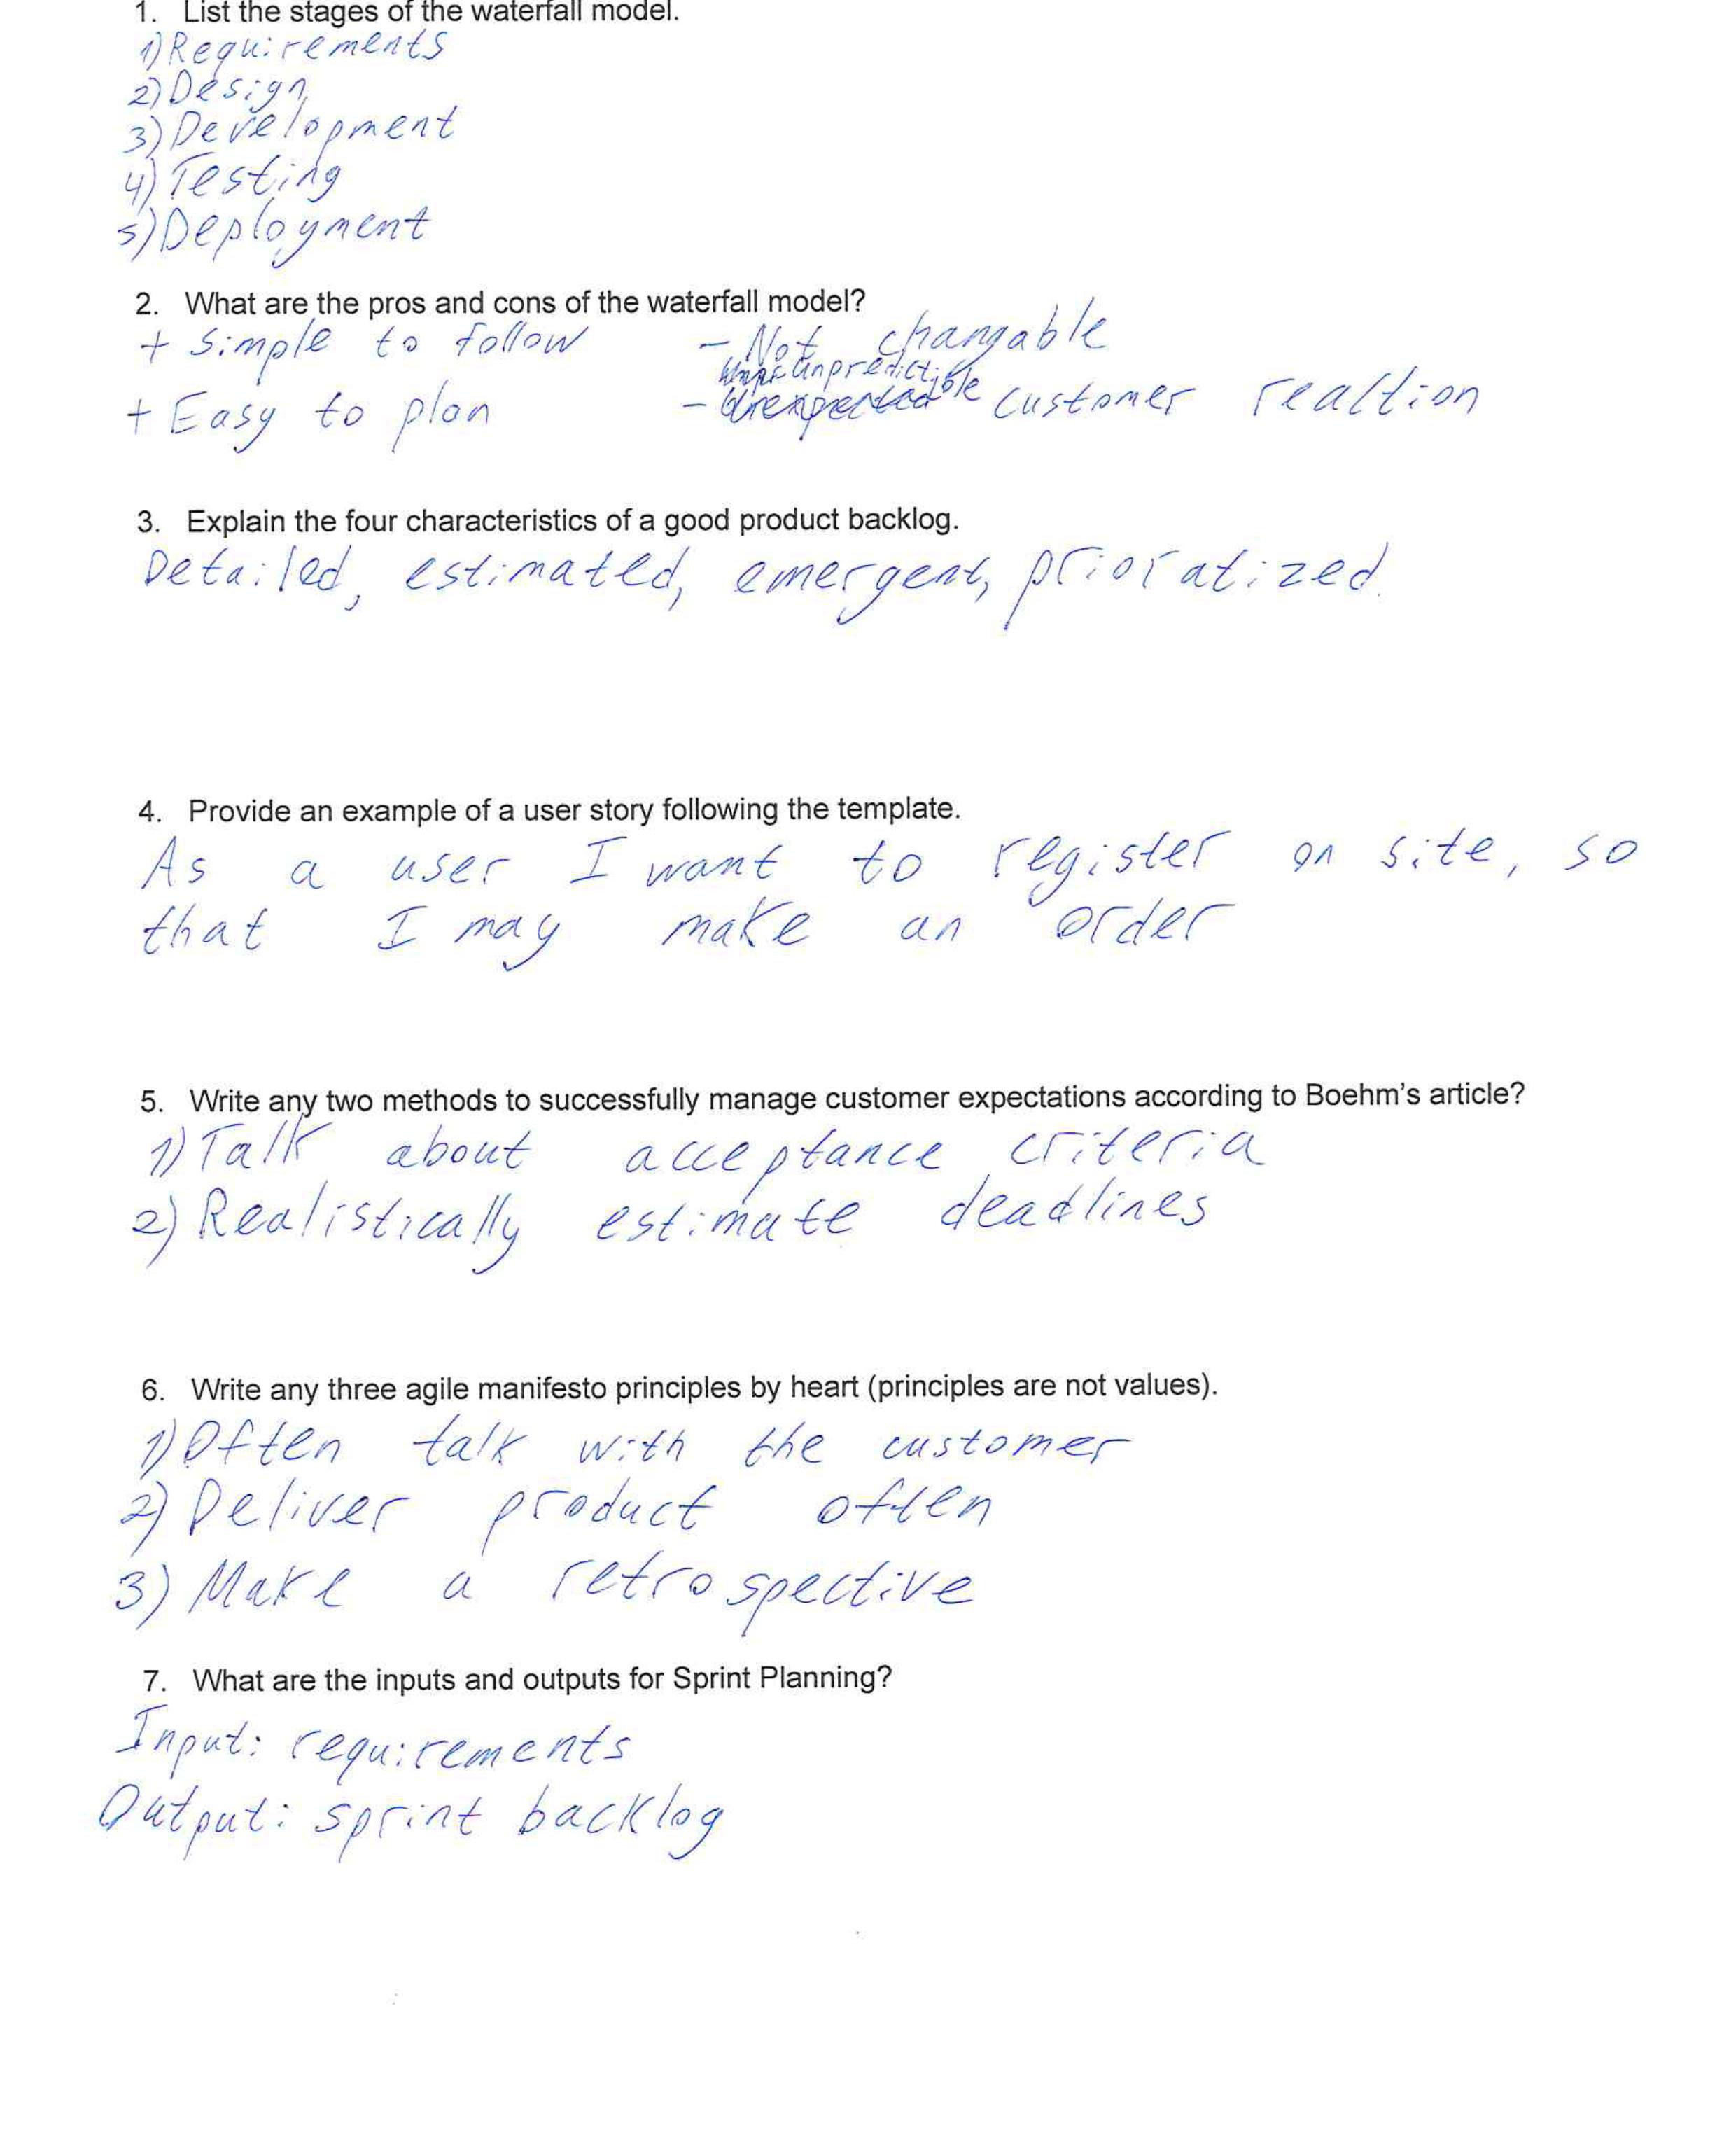 1. List the stages of the waterfall model.
1) Requirements
2) Design
3) Development
4) Testing
5) Deployment
2. What are the pros and cons of the waterfall model?
+ Simple to follow - Not changable
unpredictible
+ Easy to plan - customer reaction
3. Explain the four characteristics of a good product backlog.
Detailed, estimated, emergent, prioratized.
4. Provide an example of a user story following the template.
As a user I want to register on site, so
that I may make an order
5. Write any two methods to successfully manage customer expectations according to Boehm's article?
1) Talk about acceptance criteria
2) Realistically estimate deadlines
6. Write any three agile manifesto principles by heart (principles are not values).
1) Often talk with the customer
2) Deliver product often
3) Make a retrospective
7. What are the inputs and outputs for Sprint Planning?
Input: requirements
Output: sprint backlog